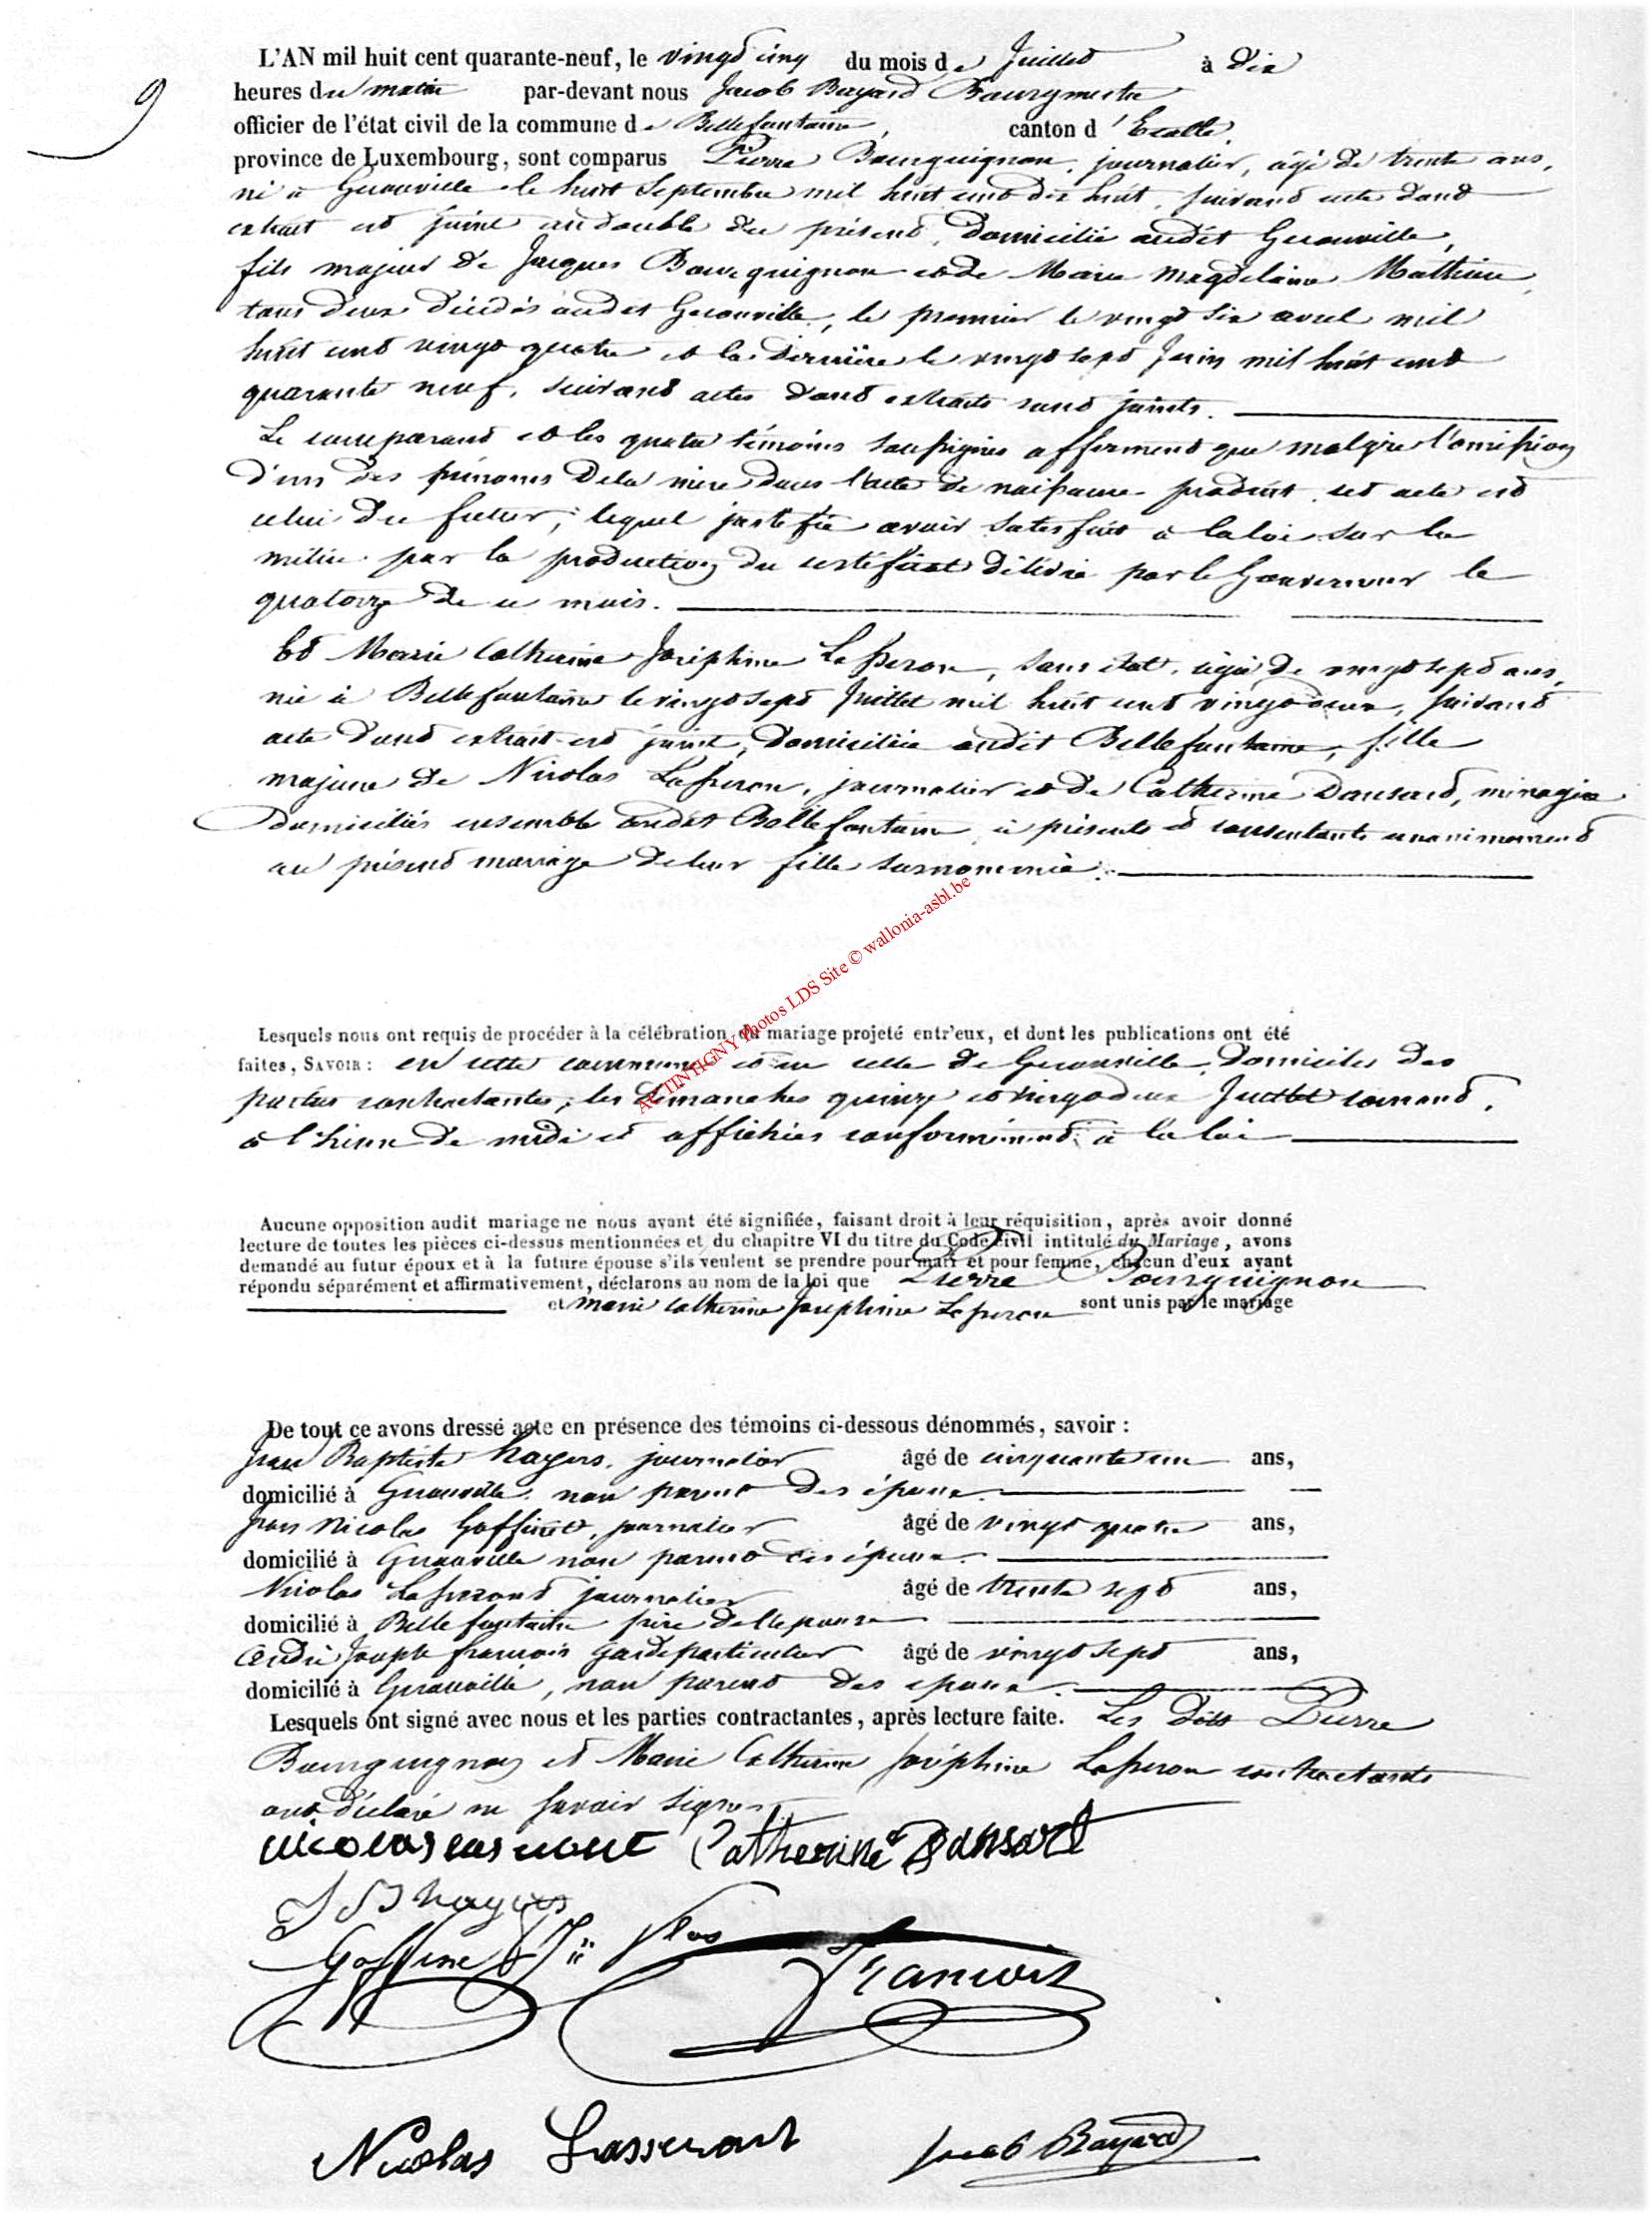 9
L'AN mil huit cent quarante-neuf, le vingt cinq du mois de Juillet à dix
heures du matin par-devant nous Jacob Bayard Bourgmestre
officier de l'état civil de la commune de Bellefontaine, canton d'Etalle
province de Luxembourg, sont comparus Pierre Bourguignon, journalier, âgé de trente ans,
né à Gerouville le huit Septembre mil huit cent dix huit, suivant acte dont
extrait est joint au double du présent, domicilié audit Gerouville,
fils majeur de Jacques Bourguignon et de Marie Magdelaine Mathieu,
tous deux décédés audit Gerouville, le premier le vingt six avril mil
huit cent vingt quatre et la dernière le vingt sept Juin mil huit cent
quarante neuf, suivant actes dont extraits sont joints.
Le comparant et les quatre témoins soussignés afferment que malgré l'omission
d'un des prénoms de la mère dans l'acte de naissance produit, cet acte est
celui du futur; lequel justifie avoir satisfait à la loi sur la
milice par la production du certificat délivré par le Gouverneur le
quatorze de ce mois.
Et Marie Catherine Joséphine Lasseron, sans état, âgée de vingt sept ans,
née à Bellefontaine le vingt sept Juillet mil huit cent vingt deux, suivant
acte dont extrait est joint, domiciliée audit Bellefontaine, fille
majeure de Nicolas Lasseron, journalier et de Catherine Dansard, ménagère
domiciliés ensemble audit Bellefontaine, ci présents et consentants unanimement
au présent mariage de leur fille surnommée.
ACTINTIGNY Photos LDS Site © wallonia-asbl.be
Lesquels nous ont requis de procéder à la célébration du mariage projeté entr'eux, et dont les publications ont été
faites, SAVOIR: en cette commune et en celle de Gerouville, domiciles des
parties contractantes, les dimanches quinze et vingt deux Juillet courant,
à l'heure de midi et affichées conformément à la loi
Aucune opposition audit mariage ne nous ayant été signifiée, faisant droit à leur réquisition, après avoir donné
lecture de toutes les pièces ci-dessus mentionnées et du chapitre VI du titre du Code civil intitulé du Mariage, avons
demandé au futur époux et à la future épouse s'ils veulent se prendre pour mari et pour femme, chacun d'eux ayant
répondu séparément et affirmativement, déclarons au nom de la loi que Pierre Bourguignon
et marie catherine Josephine Lasseron sont unis par le mariage
De tout ce avons dressé acte en présence des témoins ci-dessous dénommés, savoir :
Jean Baptiste hayers, journalier âgé de cinquante un ans,
domicilié à Gerouville, non parent des époux.
Jean Nicolas Goffinet, journalier âgé de vingt quatre ans,
domicilié à Gerouville non parent des époux.
Nicolas Lasseront journalier âgé de trente sept ans,
domicilié à Bellefontaine frère de l'epouse
André Joseph francois garde particulier âgé de vingt sept ans,
domicilié à Gerouville, non parent des epoux.
Lesquels ont signé avec nous et les parties contractantes, après lecture faite. Les dits Pierre
Bourguignon et Marie Catherine Joséphine Lasseron contractants
ont déclaré ne savoir signer.
Catherine Dansart
J B hayers
Goffinet
Francois
Nicolas Lasseront Jacob Bayard